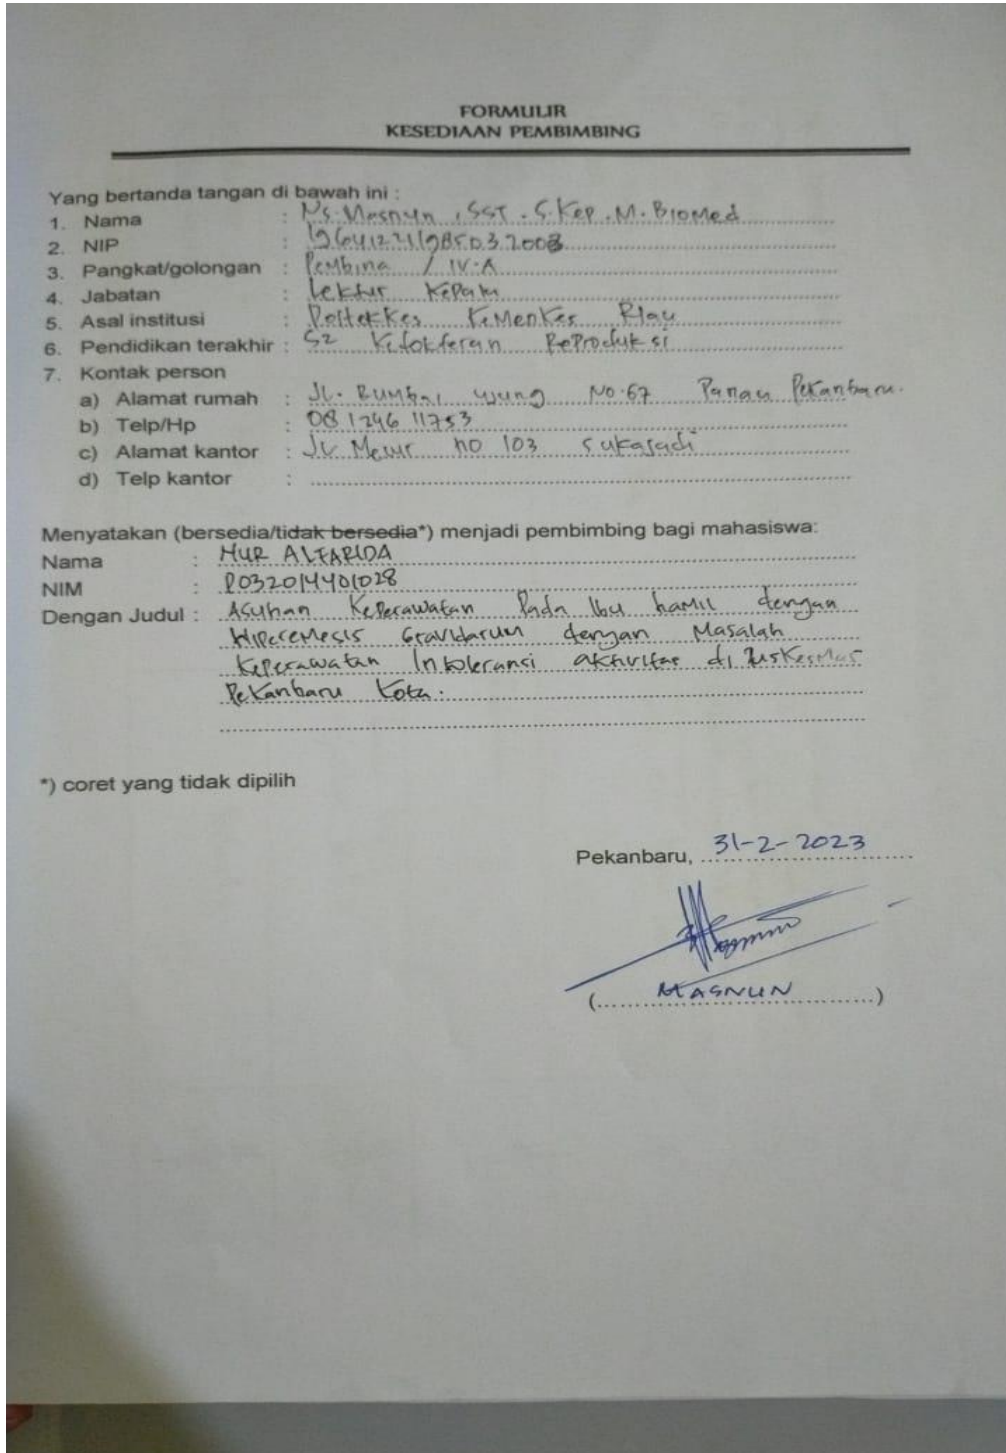 FORMULIR
KESEDIAAN PEMBIMBING
Yang bertanda tangan di bawah ini :
1. Nama : Ns. Masnun , SST . S.Kep . M. BioMed
2. NIP : 196412241985032003
3. Pangkat/golongan : Pembina / IV-A
4. Jabatan : Lektur Kepala
5. Asal institusi : PoltekKes KeMenKes Riau
6. Pendidikan terakhir : S2 Kedokteran Reproduksi
7. Kontak person
a) Alamat rumah : JL. Rumbai ujung No.67 Pekanbaru.
b) Telp/Hp : 081246 11753
c) Alamat kantor : JL. Melur no 103 sukajadi
d) Telp kantor :
Menyatakan (bersedia/tidak bersedia*) menjadi pembimbing bagi mahasiswa:
Nama : NUR ALFARIDA
NIM : P032014401028
Dengan Judul : Asuhan Keperawatan Pada Ibu hamil dengan
Hiperemesis Gravidarum dengan Masalah
Keperawatan Intoleransi aktivitas di Puskesmas
Pekanbaru Kota.
*) coret yang tidak dipilih
Pekanbaru, 31-2-2023
(MASNUN)